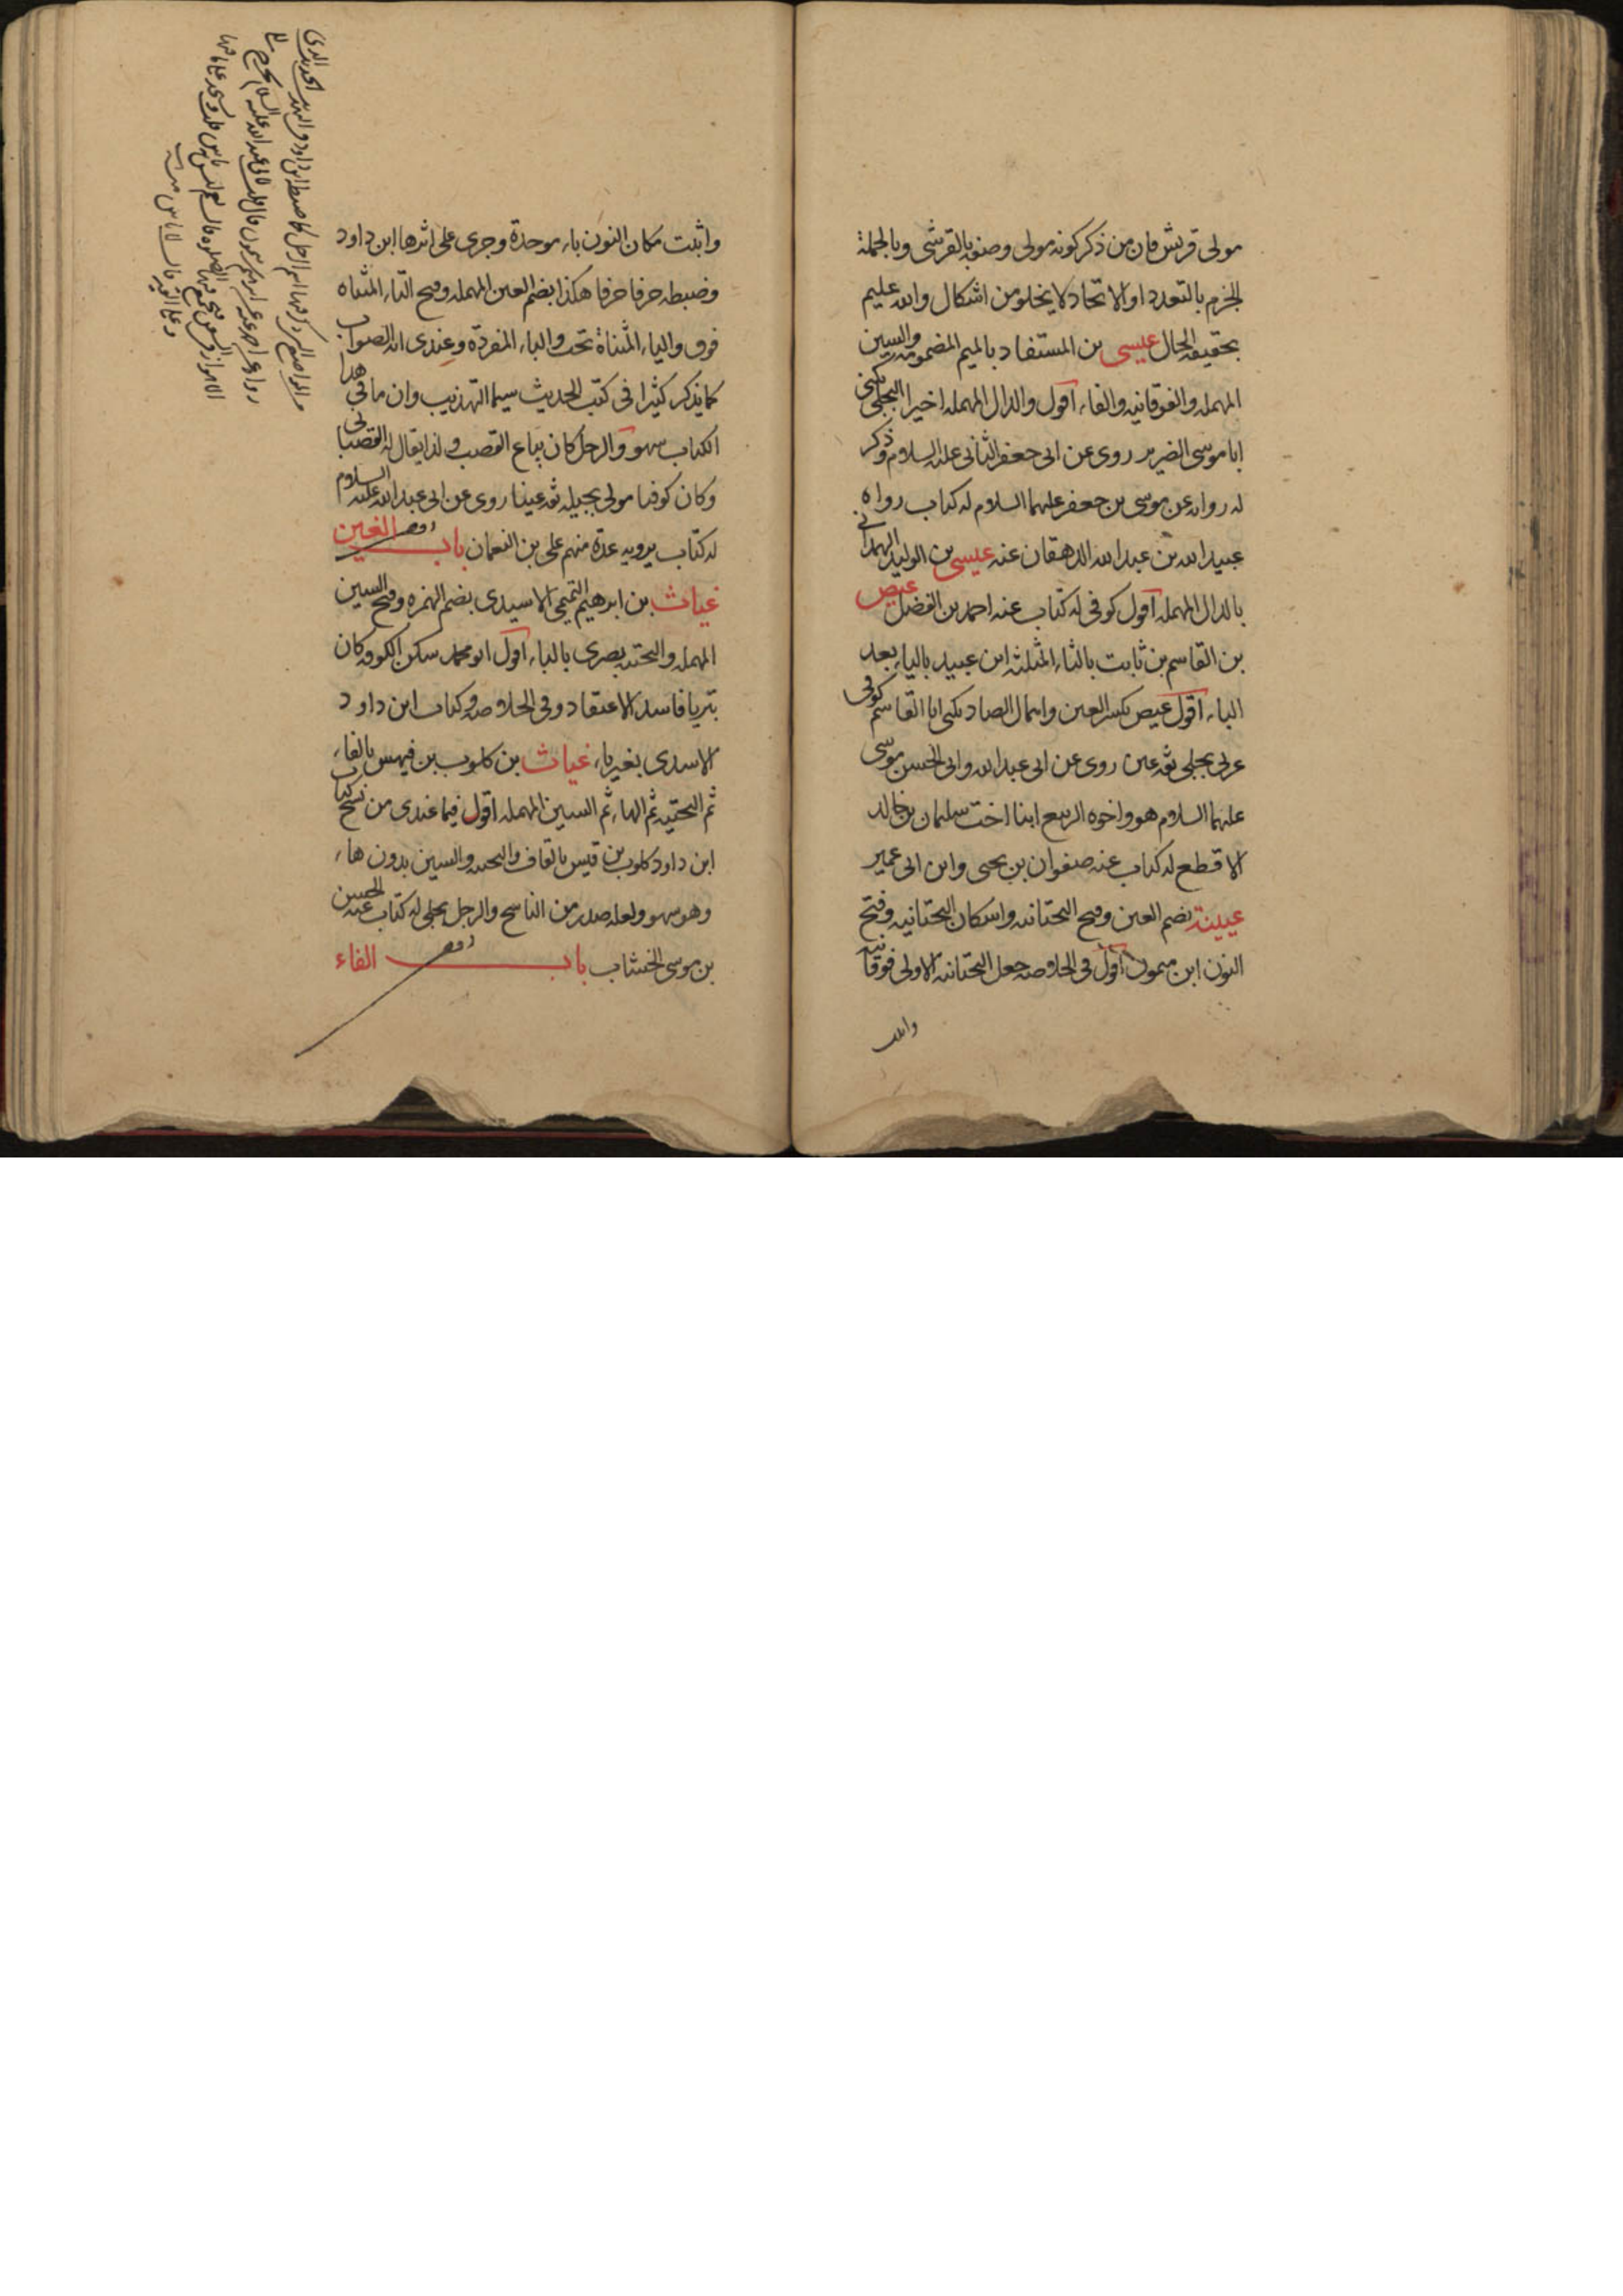 مولى قريش فان من ذكر كونه مولى وصفه بالقرشى وبالجملة
الجزم بالتعدد او الاتحاد لا يخلو من اشكال والله عليم
بحقيقة الحال عيسى بن المستفاد بالميم المضمومة والسين
المهمله والفوقانيه والفاء اقول والدال المهمله اخيرا البجلى يكنى
ابا موسى الضرير روى عن ابى جعفر الثانى عليه السلام وذكر
له رواية عن موسى بن جعفر عليهما السلام له كتاب رواه
عبيد الله بن عبد الله الدهقان عنه عيسى بن الوليد الهمدانى
بالدال المهمله اقول كوفى له كتاب عنه احمد بن الفضل عيص
بن القاسم بن ثابت بالثاء المثلثه ابن عبيد بالياء بعد
الباء اقول عيص بكسر العين واهمال الصاد يكنى ابا القاسم كوفى
عربى بجلى ثقه عين روى عن ابى عبد الله وابى الحسن موسى
عليهما السلام هو واخوه الربيع ابنا اخت سليمان بن خالد
الاقطع له كتاب عنه صفوان بن يحيى وابن ابى عمير
عيينة بضم العين وفتح التحتانيه واسكان التحتانيه وفتح
النون ابن ميمون اقول فى الخلاصه جعل التحتانيه الاولى فوقانيه
واثبت
واثبت مكان النون باء موحدة وجرى على اثرها ابن داود
وضبطه حرفا حرفا هكذا بضم العين المهمله وفتح التاء المثناه
فوق والياء المثناة تحت والباء المفردة وعندى انه الصواب
كما يذكر كثيرا فى كتب الحديث سيما التهذيب وان ما فى هذا
الكتاب سهو والرجل كان بياع القصب ولذا يقال له القصبانى
وكان كوفيا مولى بجيله ثقه عينا روى عن ابى عبد الله عليه السلام
له كتاب يرويه عدة منهم على بن النعمان باب الغين
غياث بن ابرهيم التميمى الاسيدى بضم الهمزه وفتح السين
المهمله والتحتيه بصرى بالباء اقول ابو محمد سكن الكوفه كان
بتريا فاسد الاعتقاد وفى الخلاصه وكتاب ابن داود
الاسدى بغير ياء غياث بن كلوب بن فيهس بالفاء
ثم التحتيه ثم الهاء ثم السين المهمله اقول فيما عندى من نسخ كتاب
ابن داود كلوب بن قيس بالقاف والتحتيه والسين بدون هاء
وهو سهو ولعله صدر من الناسخ والرجل بجلى له كتاب عنه الحسن
بن موسى الخشاب باب الفاء